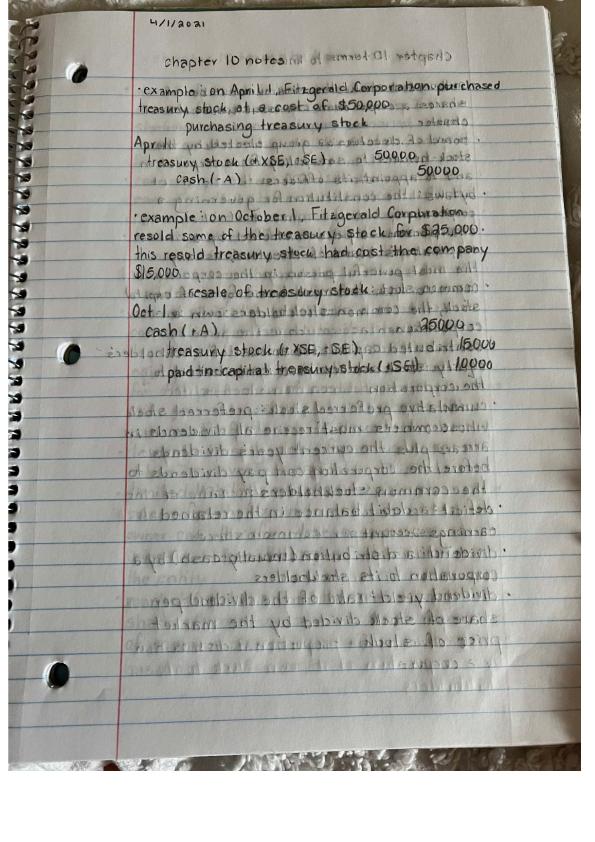 4/1/2021
chapter 10 notes
• example: on April 1, Fitzgerald Corporation purchased
treasury stock at a cost of $50,000.
purchasing treasury stock
April 1
treasury stock (+XSE, -SE) 50000
cash (-A) 50000
• example: on October 1, Fitzgerald Corporation
resold some of the treasury stock for $25,000.
this resold treasury stock had cost the company
$15,000.
resale of treasury stock
Oct 1
cash (+A) 25000
treasury stock (-XSE, +SE) 15000
paid-in-capital treasury stock (+SE) 10000